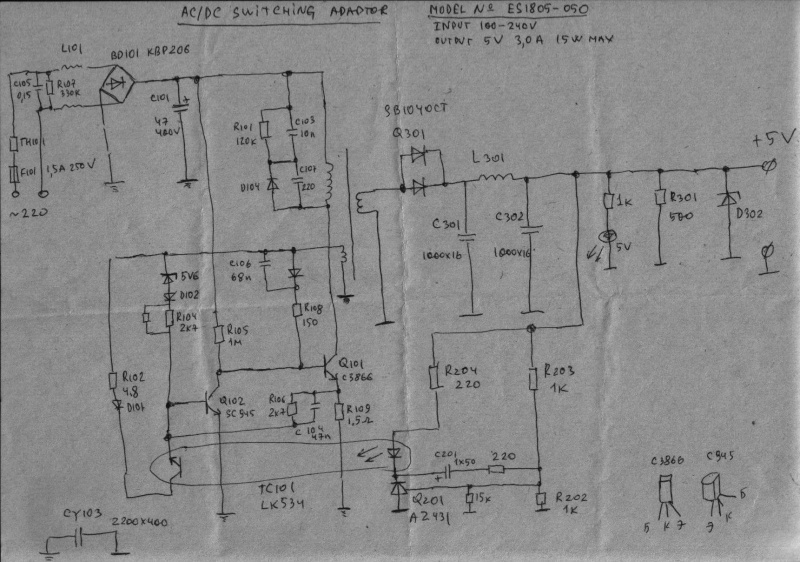 AC/DC SWITCHING ADAPTOR
MODEL № ES1805-050
INPUT 100-240V
OUTPUT 5V 3,0A 15W MAX
L101
BD101 KBP206
C105
0,15
R107
330K
C101
47
400V
TH101
F101
1,5A 250V
~220
R101
120K
C103
10n
D104
C107
220
SB1040CT
Q301
L301
+5V
C301
1000x16
C302
1000x16
1K
5V
R301
500
D302
5V6
D102
R104
2K7
C106
68n
R108
150
R105
1M
Q101
C3866
R102
4.8
D101
Q102
SC945
R106
2K7
C104
47n
R109
1,5Ω
R204
220
R203
1K
TC101
LK534
C201
1x50
220
Q201
A2431
15K
R202
1K
CY103
2200x400
C3866
Б К Э
C945
Б
К
Э